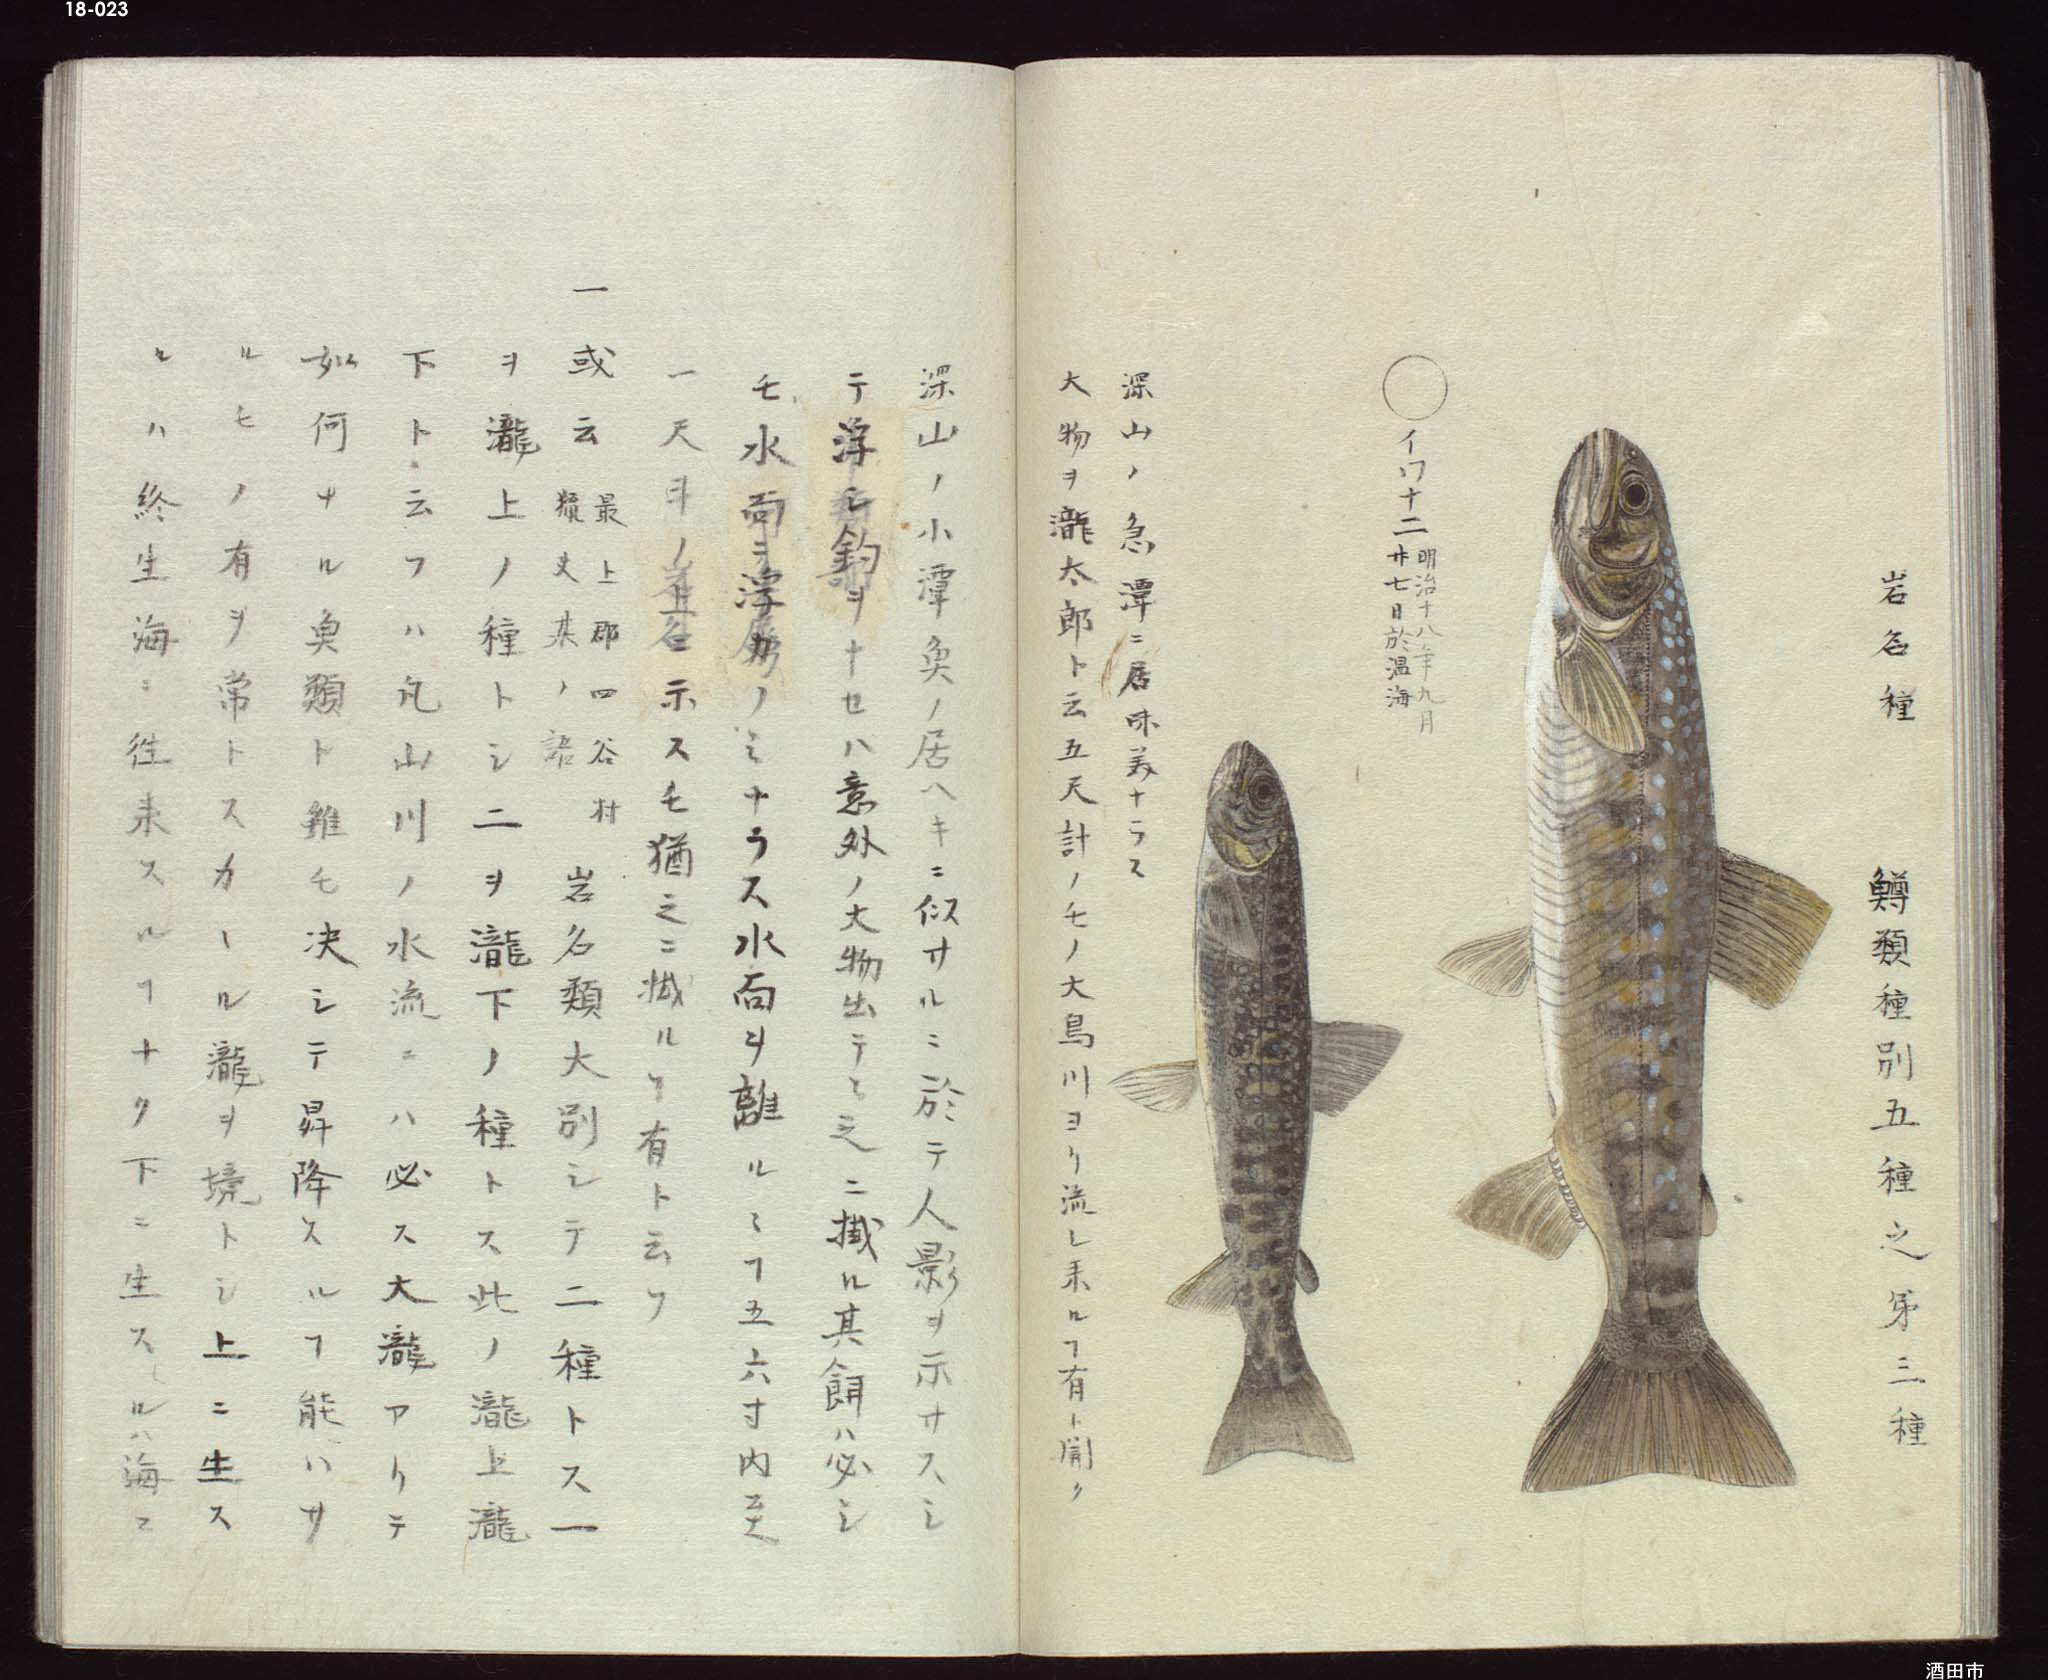 18-023
岩名種　鱒類種別五種之第三種
○イワナ二 明治十八年九月
廿七日於温海
深山ノ急潭ニ居味美ナラス
大物ヲ瀧太郎ト云五尺計ノモノ大鳥川ヨリ流レ来ルヿ有ト聞ク
深山ノ小潭魚ノ居ヘキニ似サルニ於テ人影ヲ示サスシ
テ浮シ釣ヲナセハ意外ノ大物出テヽ之ニ掛ル其餌ハ必シ
モ水面ヲ浮カノミナラス水面ヲ離ルヽヿ五六寸内至
一尺斗ノ
示スモ猶之ニ掛ルヿ有ト云フ
一或云 最上郡四谷村
某ノ話
岩名類大別シテ二種トス一
ヲ瀧上ノ種トシ二ヲ瀧下ノ種トス此ノ瀧上瀧
下ト云フハ凡山川ノ水流ニハ必ス大瀧アリテ
如何ナル魚類ト雖モ决シテ昇降スルヿ能ハサ
ルモノ有ヲ常トスカール瀧ヲ境トシ上ニ生ス
ルハ終生海ニ往来スルヿナク下ニ生スルハ海ニ
酒田市